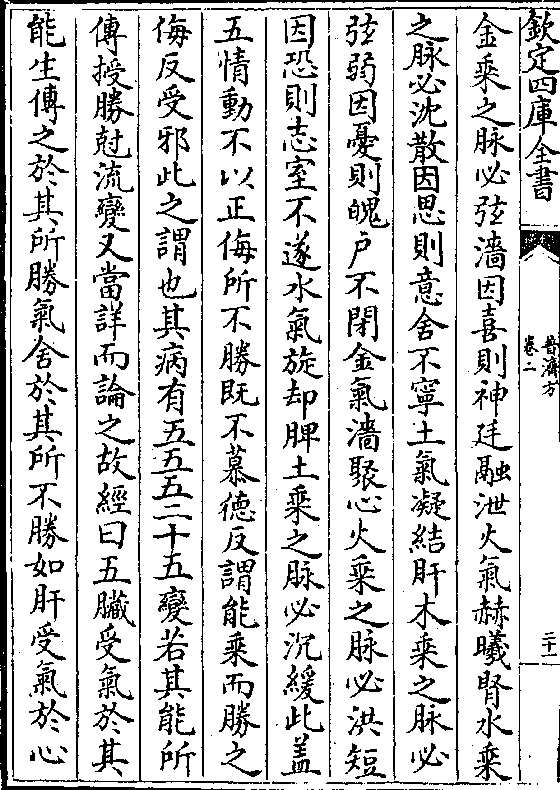 欽定四庫全書
普濟方
卷二
二十一
金乘之脉必弦濇因喜則神廷融泄火氣赫曦腎水乘
之脉必沈散因思則意舍不寧土氣凝結肝木乘之脉必
弦弱因憂則魄户不閉金氣濇聚心火乘之脉必洪短
因恐則志室不遂水氣旋却脾土乘之脉必沉緩此盖
五情動不以正侮所不勝既不慕德反謂能乘而勝之
侮反受邪此之謂也其病有五五五二十五變若其能所
傳授勝尅流變又當詳而論之故經曰五臟受氣於其
能生傳之於其所勝氣舍於其所不勝如肝受氣於心